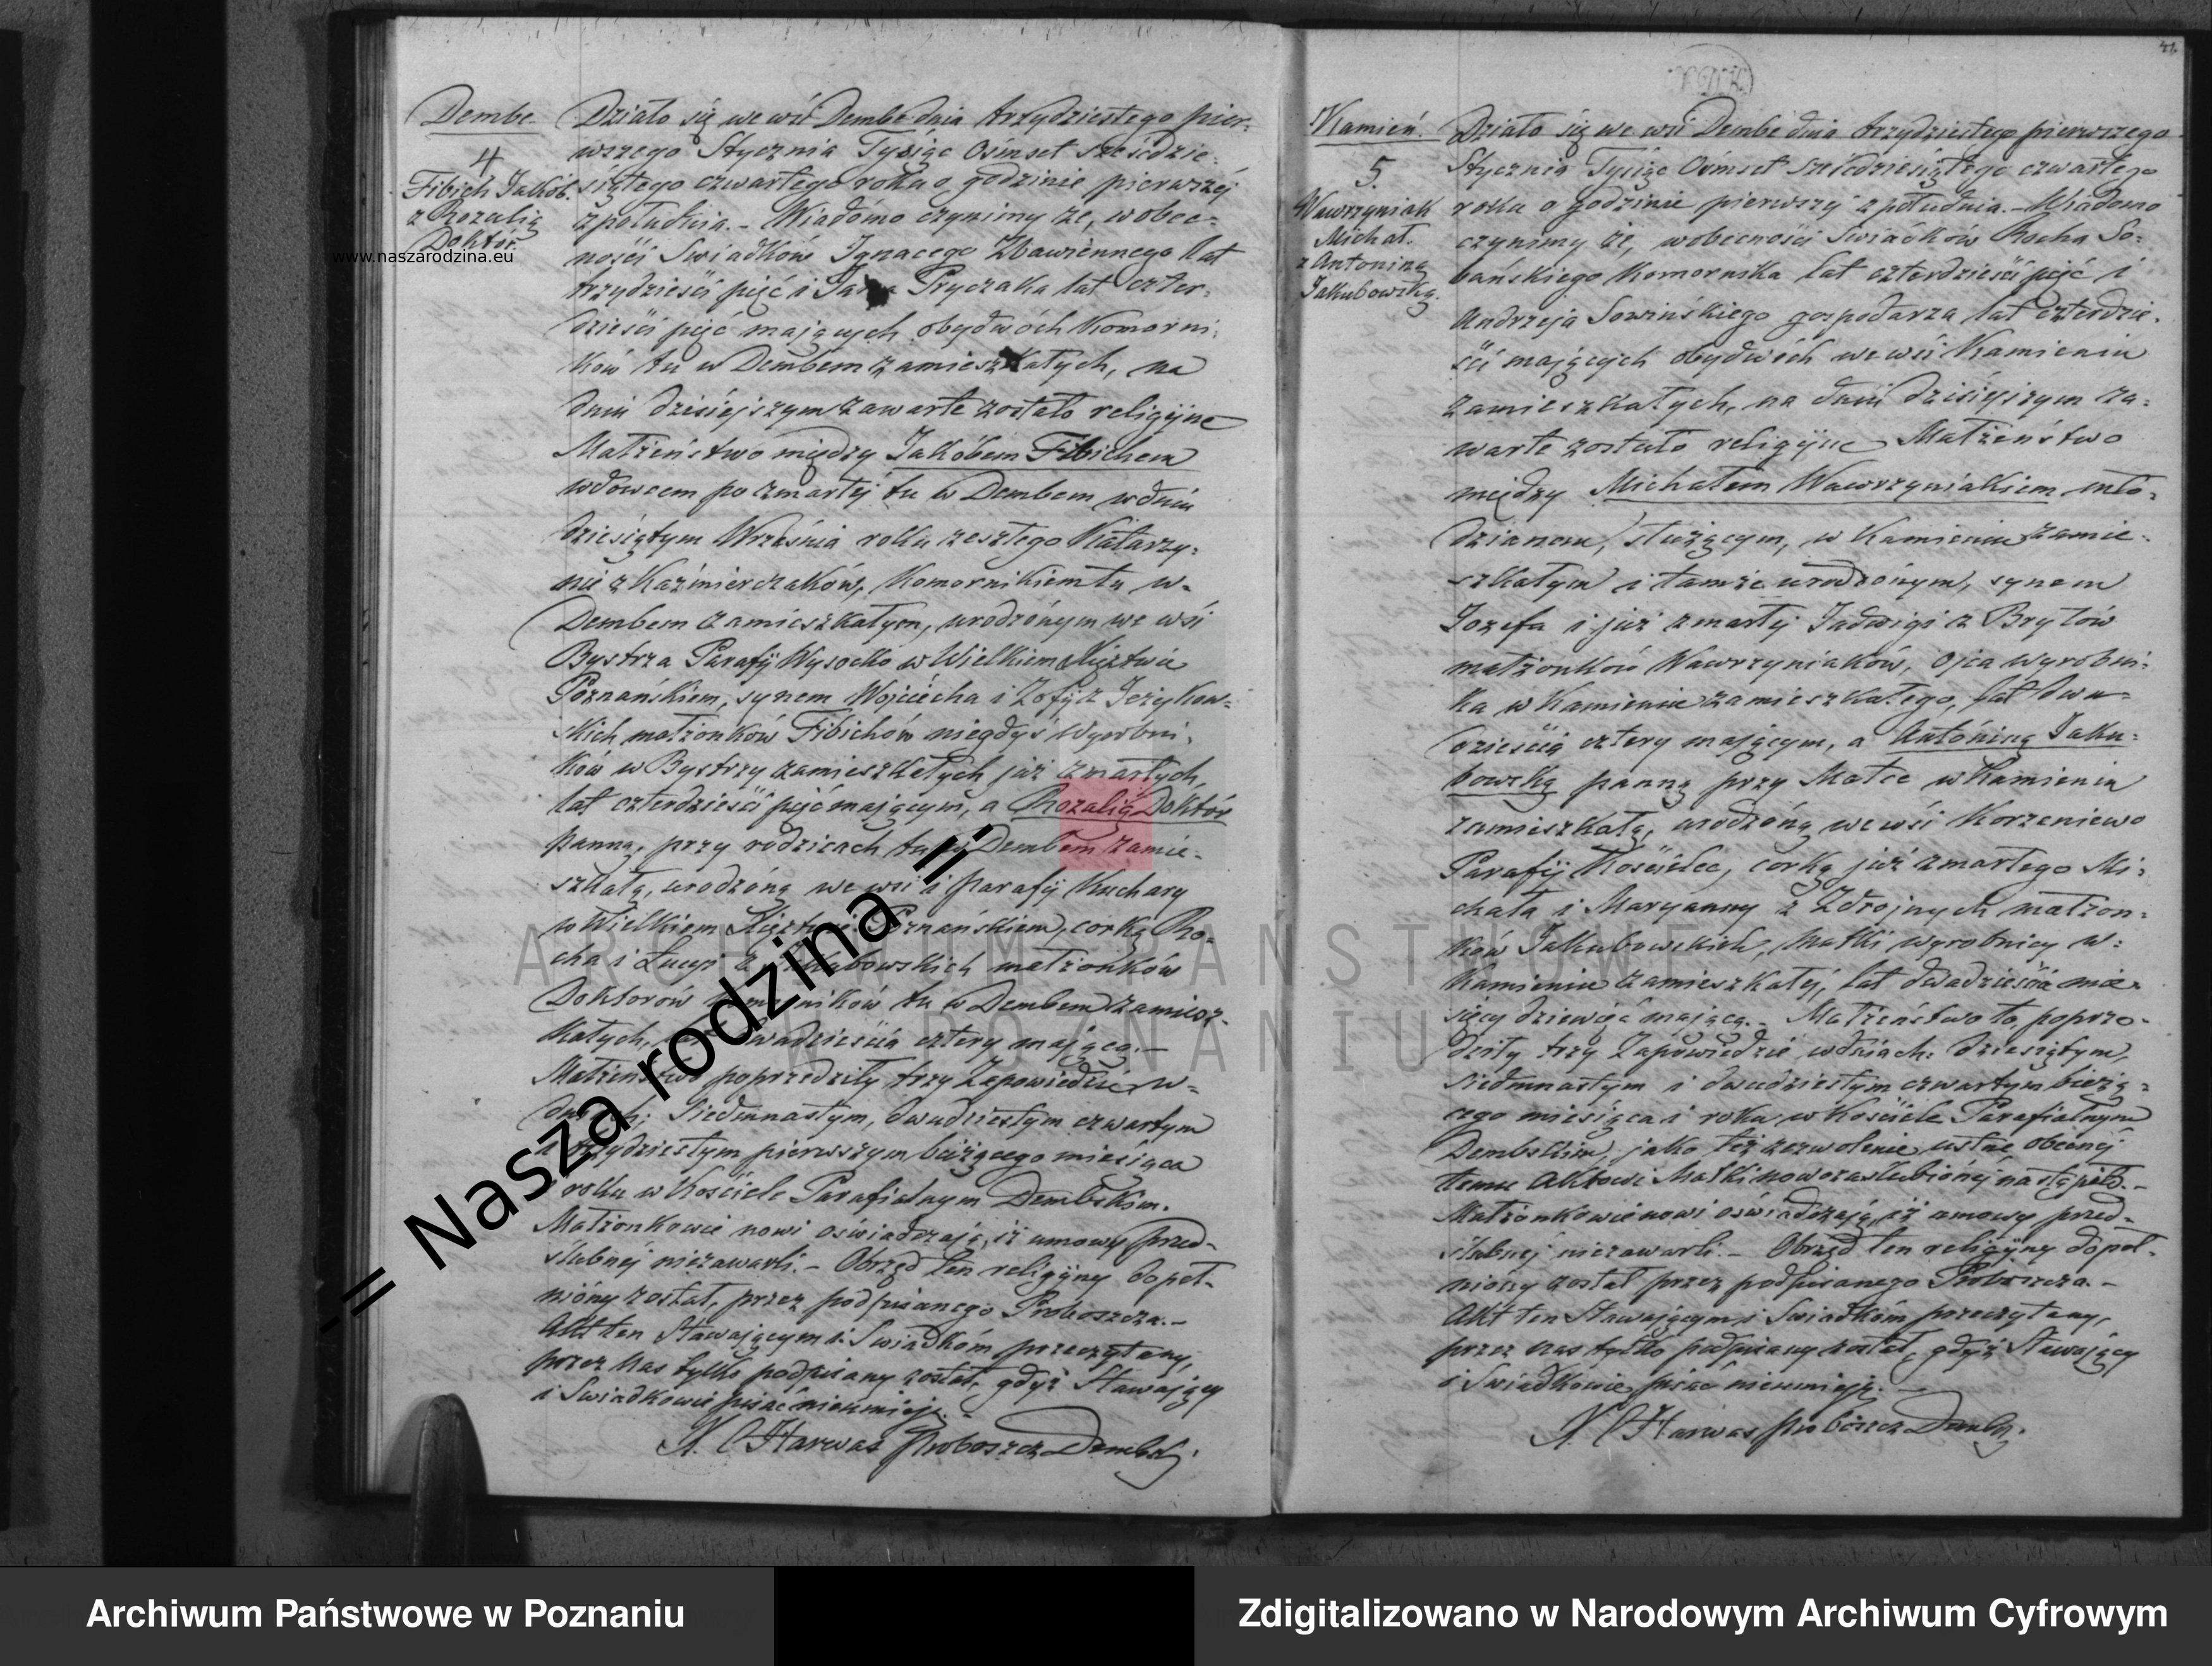 Dembe.
4
Fibich Jakób.
z Rozalią
Doktór.
www.naszarodzina.eu
Działo się we wsi Dembe dnia trzydziestego pier-
wszego Stycznia Tysiąc Ośmset sześćdzie-
siątego czwartego roku o godzinie pierwszéj
z południa. – Wiadomo czynimy że, w obec-
ności Swiadków Ignacego Zbawiennego lat
trzydzieści pięć i Jana Pryczaka lat czter-
dzieści pięć mających obydwóch Komorni-
ków tu w Dembem zamieszkałych, na
dniu dzisiejszym zawarte zostało religijne
Małżeństwo między Jakóbem Fibichem
wdowcem po zmarłéj tu w Dembem w dniu
dziesiątym Września roku zeszłego Katarzy-
nie z Kaźmierczaków, Komornikiem tu w-
Dembem zamieszkałym, urodzónym we wsi
Bystrza Parafij Wysocko w Wielkiem Xięztwie
Poznańskiem, synem Wojciécha i Zofij z Jezykow-
skich małżonków Fibichów niegdyś Wyrobni-
ków w Bystrzy zamieszkałych już zmarłych,
lat czterdzieści pięć mającym, a Rozalią Doktór
panną, przy rodzicach tu w Dembem zamie-
szkałą, urodzóną we wsi i Parafij Kuchary
w Wielkiem Xięztwie Poznańskiem, córką Ro-
cha i Łucyi z Jakubowskich małżonków
Doktorów Komorników tu w Dembem zamiesz-
kałych, lat dwadzieścia cztery mającą. –
Małżeństwo poprzedziły trzy Zapowiedzie w-
dniach: Siedmnastym, dwudziestym czwartym
i trzydziestym pierwszym bieżącego miesiąca
roku w Kościele Parafialnym Dembskim.
Małżonkowie nowi oświadczają, iż umowy przed-
ślubnéj niezawarli. – Obrzęd ten religijny dopeł-
nióny został, przez podpisanego Proboszcza. –
Akt ten Stawającym i Swiadkóm przeczytany,
przez Nas tylko podpisany został, gdyż Stawający
i Swiadkowie pisać nieumieją. –
X. Harwas Proboszcz Dembski.
41.
Kamień.
5.
Wawrzyniak
Michał.
z Antoniną
Jakubowską.
Działo się we wsi Dembe dnia trzydziestego pierwszego
Stycznia Tysiąc Ośmset sześćdziesiątego czwartego
roku o godzinie pierwszéj z południa. – Wiadomo
czynimy że, w obecności Swiadków Rocha So-
bańskiego Komornika lat czterdzieści pięć i
Andrzeja Sowińskiego gospodarza lat czterdzie-
ści mających obydwóch we wsi Kamieniu
zamieszkałych, na dniu dzisiejszym za-
warte zostało religijne Małżeństwo
między Michałem Wawrzyniakiem mło-
dzianem, służącym, w Kamieniu zamie-
szkałym i tamże urodzónym, synem
Józefa i już zmarłéj Jadwigi z Brylów
małżonków Wawrzyniaków, Ojca wyrobni-
ka w Kamieniu zamieszkałego, lat dwa-
dzieścia cztery mającym, a Antóniną Jaku-
bowską panną przy Matce w Kamieniu
zamieszkałą, urodzóną we wsi Korzeniewo
Parafij Kościelec, córką już zmarłego Mi-
chała i Maryanny z Zdrojnych małżon-
ków Jakubowskich, Matki wyrobnicy w-
Kamieniu zamieszkałéj, lat dwadzieścia mie-
sięcy dziewięć mającą. – Małżeństwo to, poprze-
dziły trzy Zapowiedzie w dniach: dziesiątym,
siedmnastym i dwudziestym czwartym bieżą-
cego miesiąca i roku w Kościele Parafialnym
Dembskim, jako też zezwolenie ustne obecnéj
temu Aktowi Matki nowozaślubiónéj nastąpiło. –
Małżonkowie nowi oświadczają, iż umowy przed-
ślubnéj niezawarli. – Obrzęd ten religijny dopeł-
niony został przez podpisanego Proboszcza. –
Akt ten Stawającym i Swiadkóm przeczytany,
przez nas tylko podpisany został, gdyż Stawający
i Swiadkowie pisać nieumieją. –
X. Harwas Proboszcz Dembs.
ARCHIWUM PAŃSTWOWE
W POZNANIU
-= Nasza rodzina =-
Archiwum Państwowe w Poznaniu
Zdigitalizowano w Narodowym Archiwum Cyfrowym